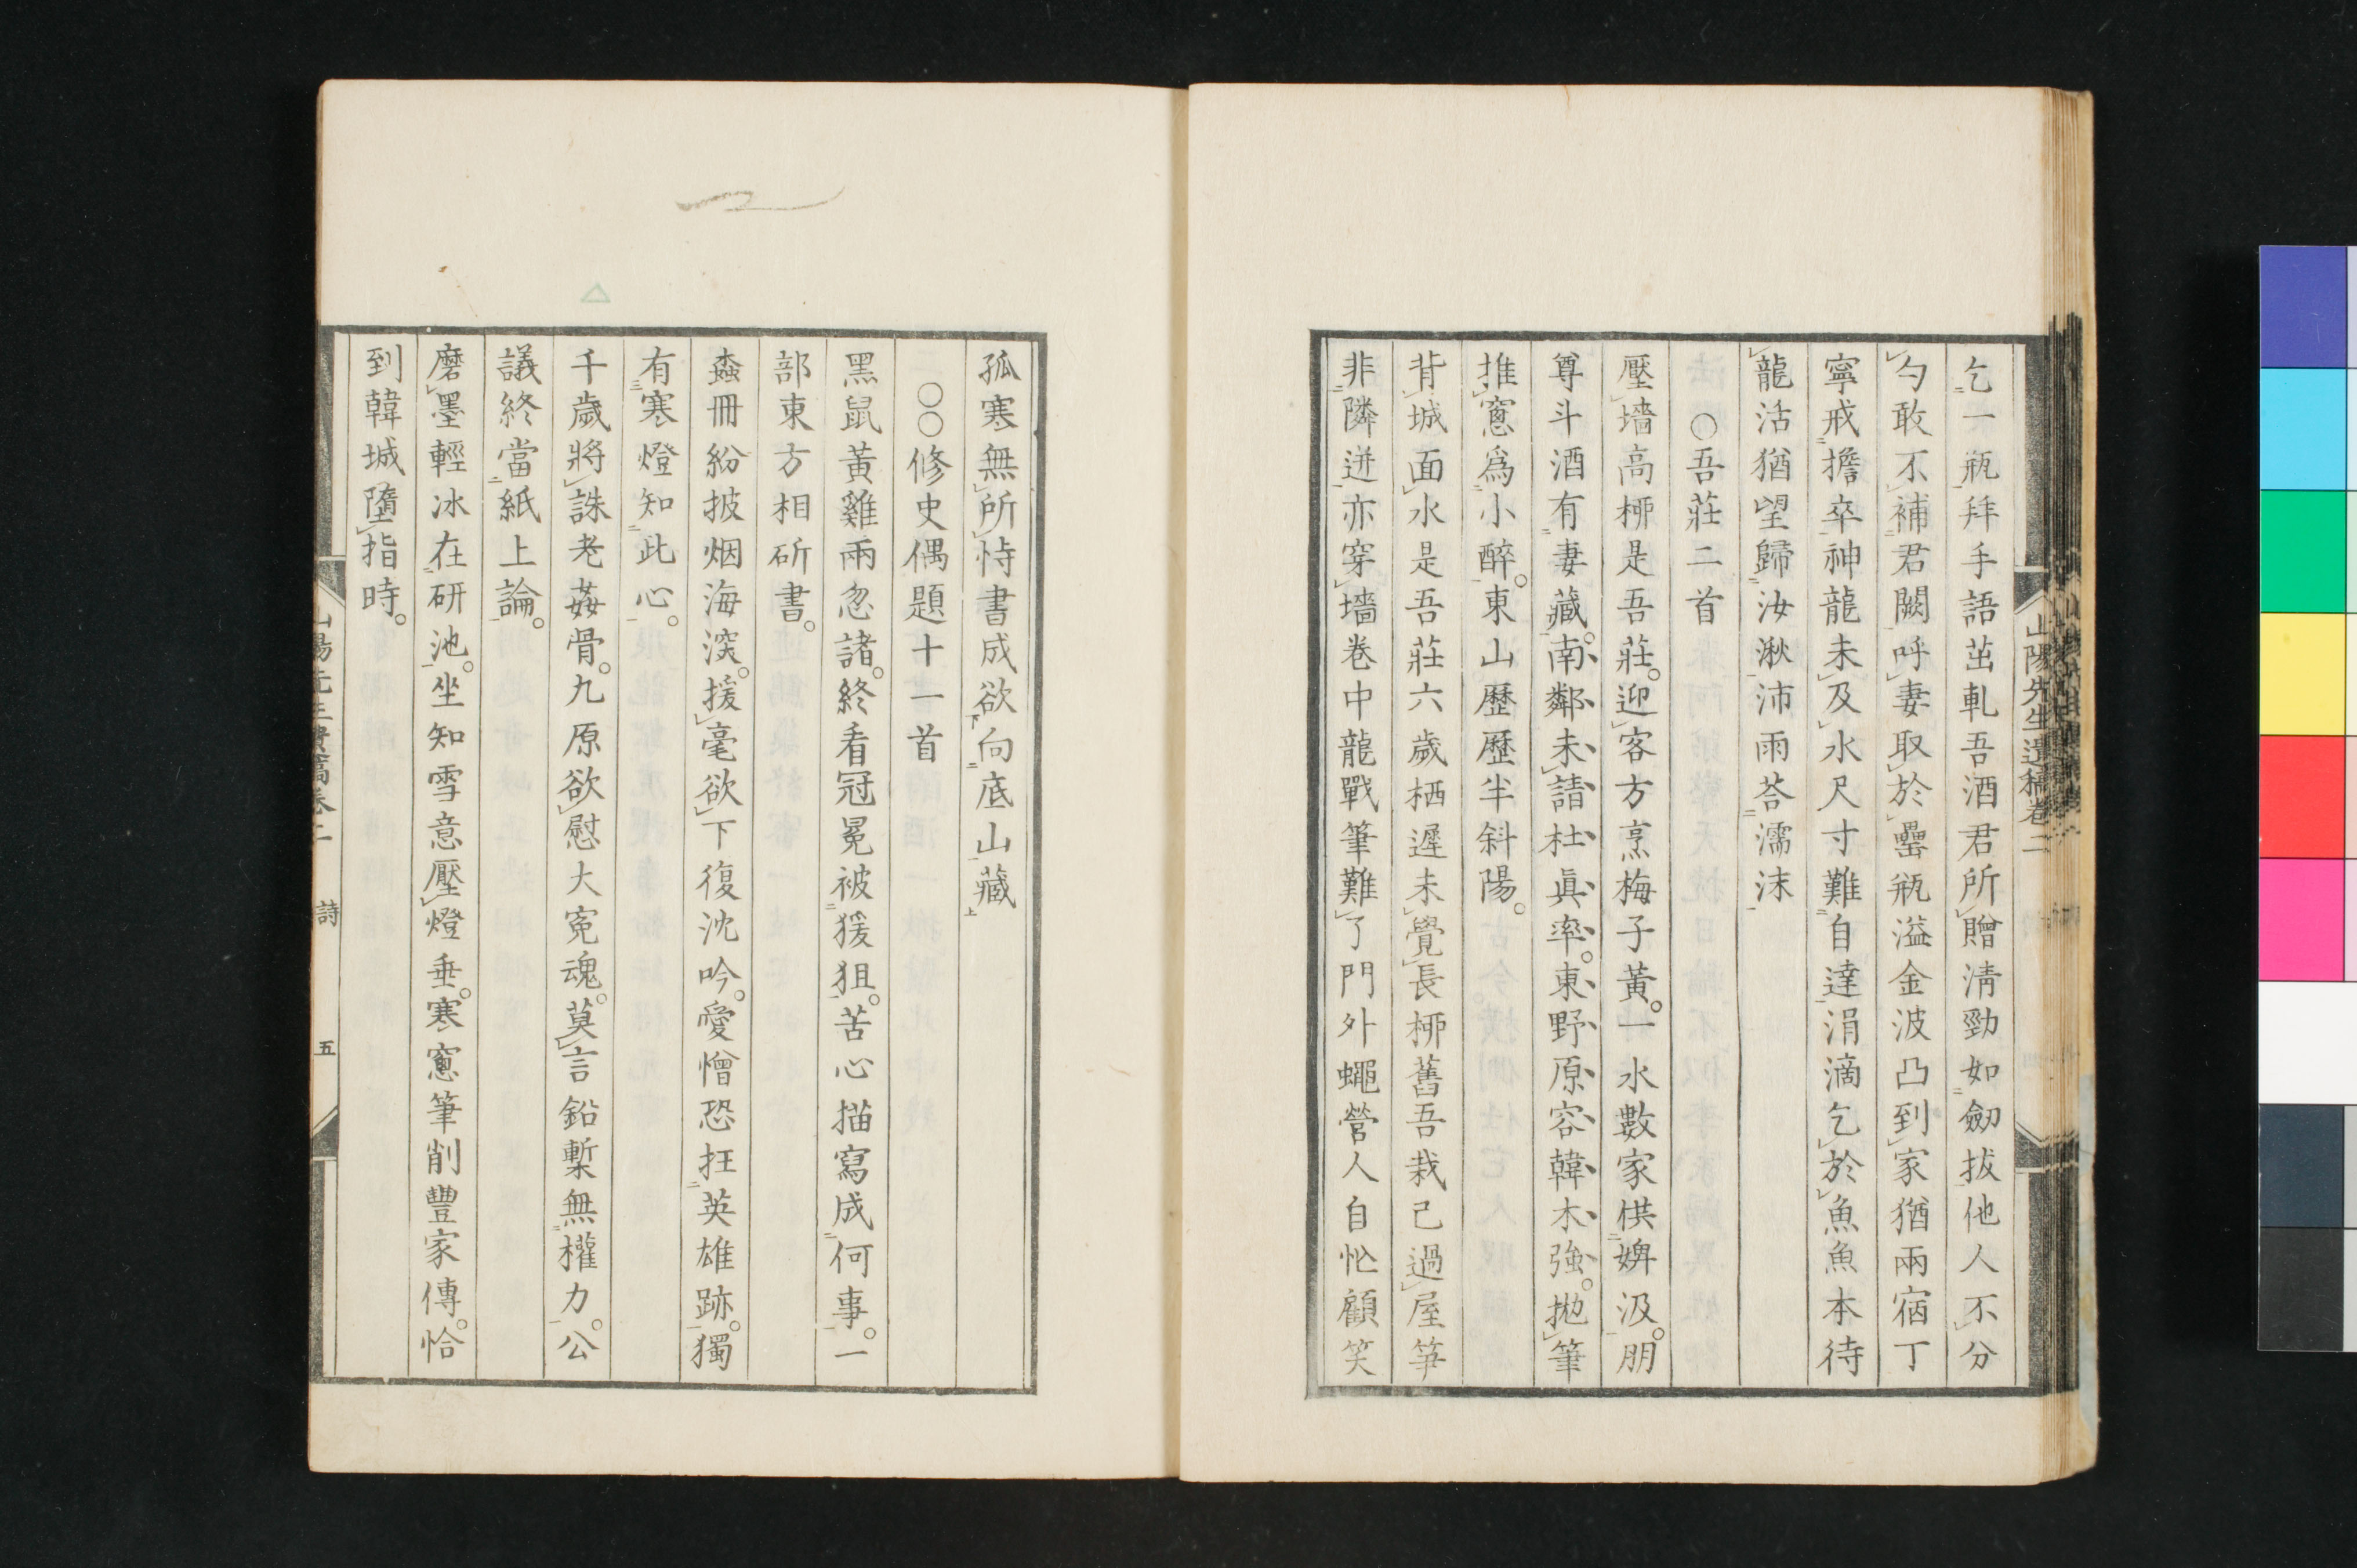 山陽先生遺稿卷二
乞一瓶拜手語茁軋吾酒君所贈淸勁如劒拔他人不分
勺敢不補君闕呼妻取於罍瓶溢金波凸到家猶兩宿丁
寧戒擔卒神龍未及水尺寸難自達涓滴乞於魚魚本待
龍活猶望歸汝湫沛雨荅濡沫
○吾莊二首
壓墻高桺是吾莊。迎客方烹梅子黃。一水數家供婢汲。朋
尊斗酒有妻藏。南鄰未請杜眞率。東野原容韓木強。拋筆
推窻爲小醉。東山歷歷半斜陽。
背城面水是吾莊六歲栖遲未覺長桺舊吾栽已過屋笋
非隣迸亦穿墻卷中龍戰筆難了門外蠅營人自忙顧笑
孤寒無所恃書成欲向底山藏
○○修史偶題十一首
黑鼠黃雞兩忽諸。終看冠冕被猨狙。苦心描寫成何事。一
部東方相斫書。
蟊冊紛披烟海深。援毫欲下復沈吟。愛憎恐抂英雄跡。獨
有寒燈知此心。
千歲將誅老姦骨。九原欲慰大寃魂。莫言鉛槧無權力。公
議終當紙上論。
磨墨輕冰在研池。坐知雪意壓燈垂。寒窻筆削豐家傳。恰
到韓城墮指時。
山陽先生遺稿卷二 詩 五